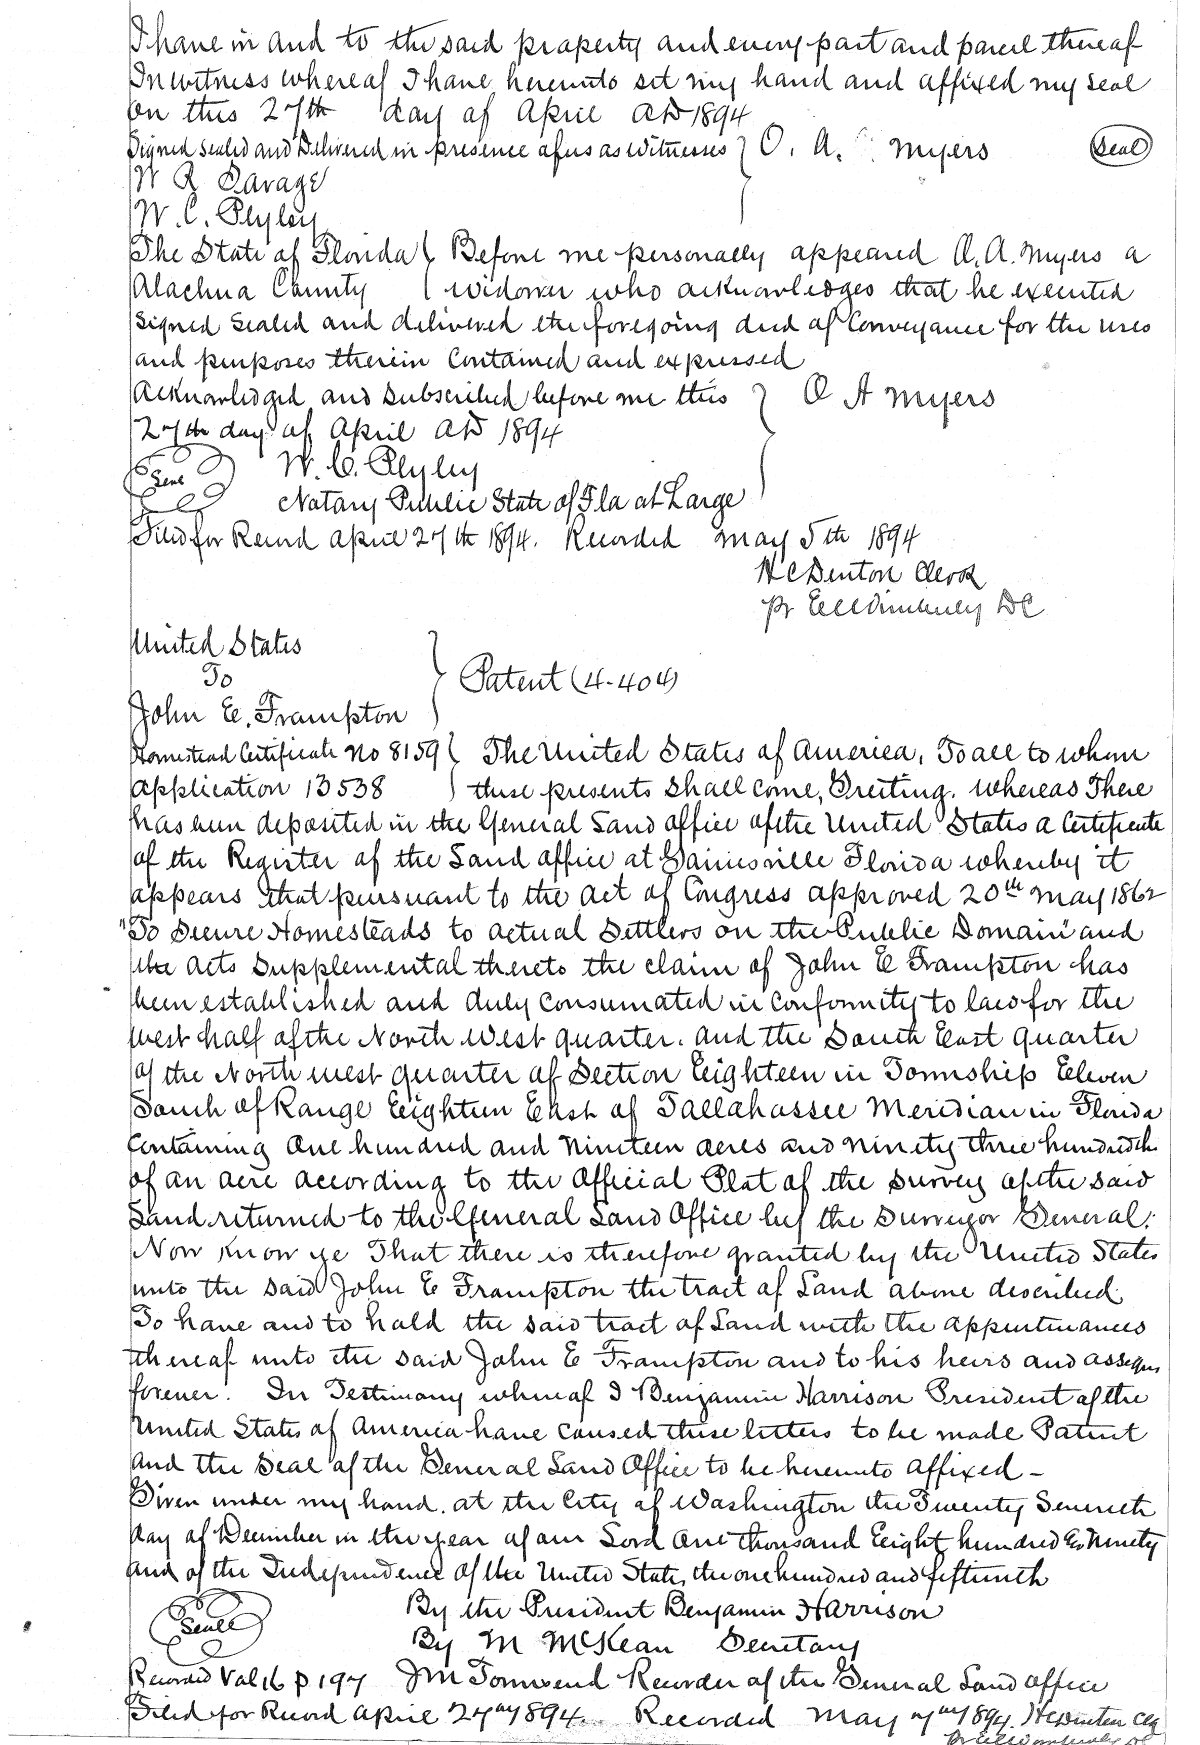 I have in and to the said property and every part and parcel thereof
In witness whereof I have hereunto set my hand and affixed my seal
on this 27th day of April AD 1894
Signed Sealed and Delivered in presence of us as witnesses } O. A. Myers (Seal)
W R Savage
W. C. Plyley
The State of Florida { Before me personally appeared O. A. Myers a
Alachua County { widower who acknowledges that he executed
signed sealed and delivered the foregoing deed of Conveyance for the uses
and purposes therein contained and expressed
Acknowledged and subscribed before me this } O A Myers
27th day of April AD 1894
Seal W. C. Plyley
Notary Public State of Fla at Large
Filed for Record April 27th 1894. Recorded May 5th 1894
H C Denton Clerk
pr E C Wimberley DC
United States
To } Patent (4-404)
John E. Frampton
Homestead Certificate No 8159 { The United States of America, To all to whom
Application 13538 } these presents shall come, Greeting. Whereas There
has been deposited in the General Land office of the United States a Certificate
of the Register of the Land office at Gainesville Florida whereby it
appears that pursuant to the act of Congress approved 20th May 1862
"To Secure Homesteads to actual Settlers on the Public Domain" and
the acts supplemental thereto the claim of John E Frampton has
been established and duly consumated in conformity to law for the
west half of the North West quarter. and the South East quarter
of the North west quarter of Section Eighteen in Township Eleven
South of Range Eighteen East of Tallahassee Meridian in Florida
Containing One hundred and Nineteen acres and ninety three hundredths
of an acre according to the Official Plat of the Survey of the said
Land returned to the General Land Office by the Surveyor General:
Now Know ye That there is therefore granted by the United States
unto the said John E Frampton the tract of Land above described.
To have and to hold the said tract of Land with the appurtenances
thereof unto the said John E Frampton and to his heirs and assigns
forever. In Testimony whereof I Benjamin Harrison President of the
United States of America have caused these letters to be made Patent
and the Seal of the General Land Office to be hereunto affixed -
Given under my hand. at the City of Washington the Twenty Seventh
day of December in the year of our Lord One thousand Eight hundred & Ninety
and of the Independence of the United States, the one hundred and fifteenth
By the President Benjamin Harrison
Seal By M McKean Secretary
Recorded Vol 16 p 197 J M Townsend Recorder of the General Land Office
Filed for Record April 27" 1894. Recorded May 7" 1894. H C Denton Clk
Pr E C Wimberley DC